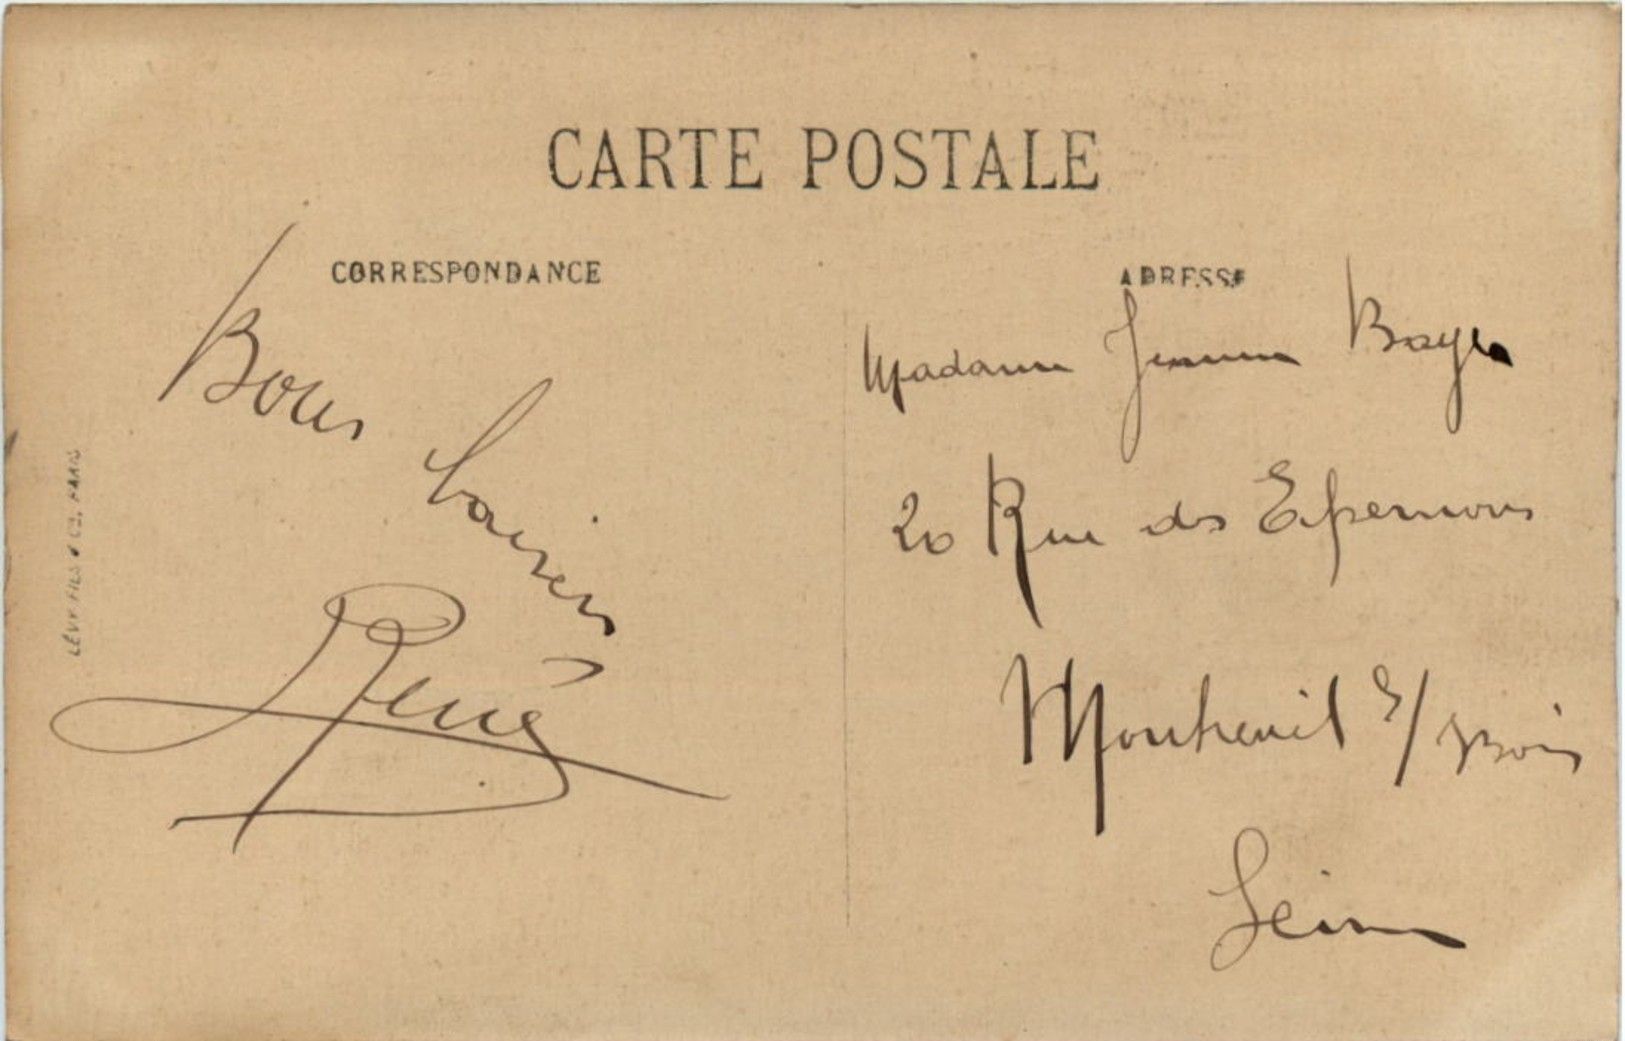 CARTE POSTALE
CORRESPONDANCE
Bons baisers
René
LÉVY FILS & Co, PARIS
ADRESSE
Madame Jeanne
20 Rue des Epernons
Montreuil s/ Bois
Seine